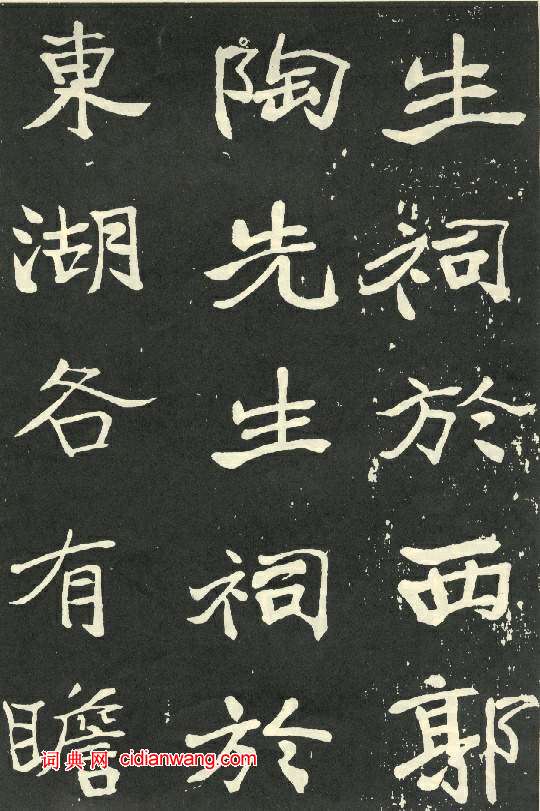 生祠於西郭
陶先生祠於
東湖各有瞻
词典网 cidianwang.com